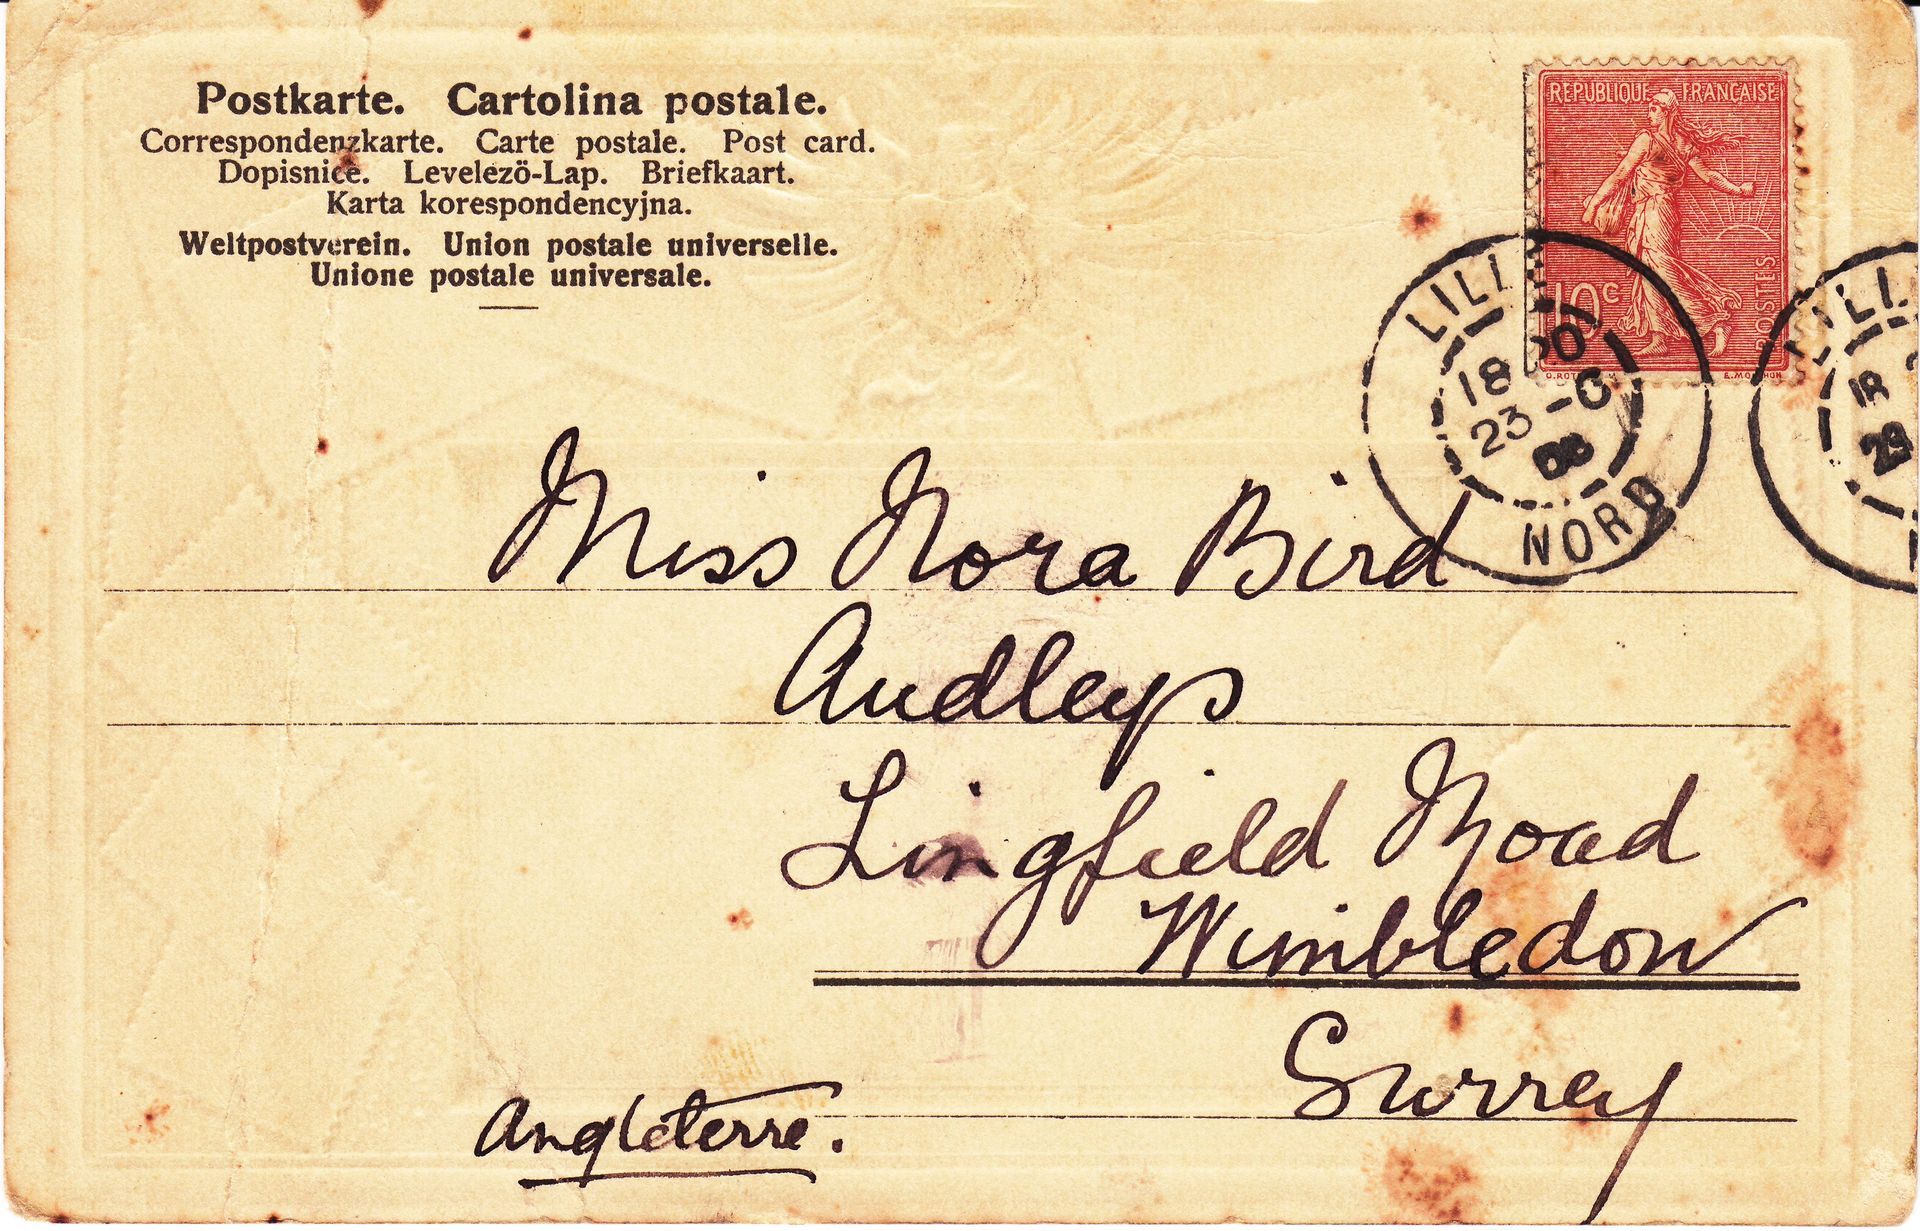 Postkarte. Cartolina postale.
Correspondenzkarte. Carte postale. Post card.
Dopisnice. Levelezö-Lap. Briefkaart.
Karta korespondencyjna.
Weltpostverein. Union postale universelle.
Unione postale universale.
REPUBLIQUE FRANÇAISE
10c
POSTES
LILL
18
23
NORD
LILL
18
29
Miss Nora Bird
Audleys
Lingfield Road
Wimbledon
Surrey
Angleterre.